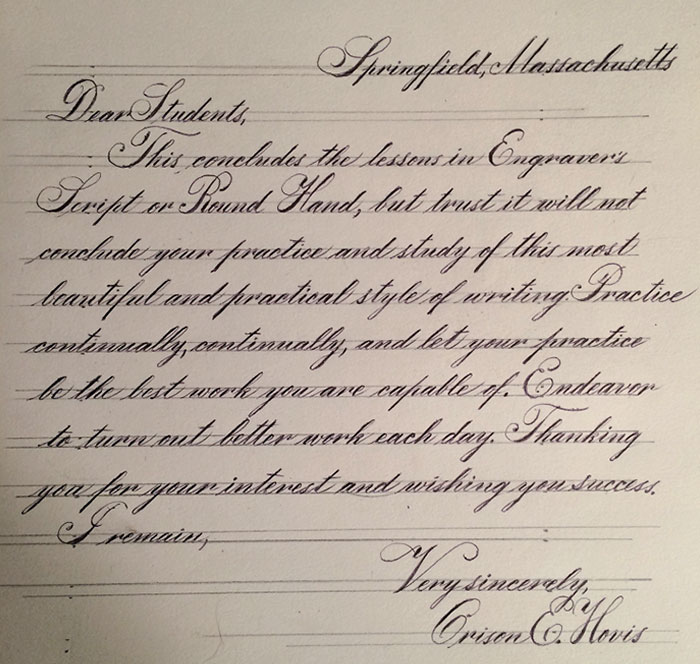 Springfield, Massachusetts
Dear Students,
This concludes the lessons in Engraver's
Script or Round Hand, but trust it will not
conclude your practice and study of this most
beautiful and practical style of writing. Practice
continually, continually, and let your practice
be the best work you are capable of. Endeavor
to turn out better work each day. Thanking
you for your interest and wishing you success.
I remain,
Very sincerely,
Orison E. Hovis